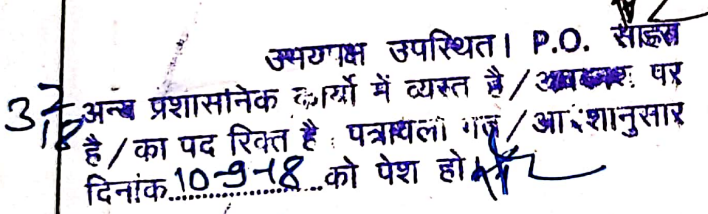 उभयपक्ष उपस्थित। P.O. साहब
अन्य प्रशासनिक कार्यो में व्यस्त है / अवकाश पर
है / का पद रिक्त है पत्रावली गत / आदेशानुसार
दिनांक 10-9-18 को पेश हो